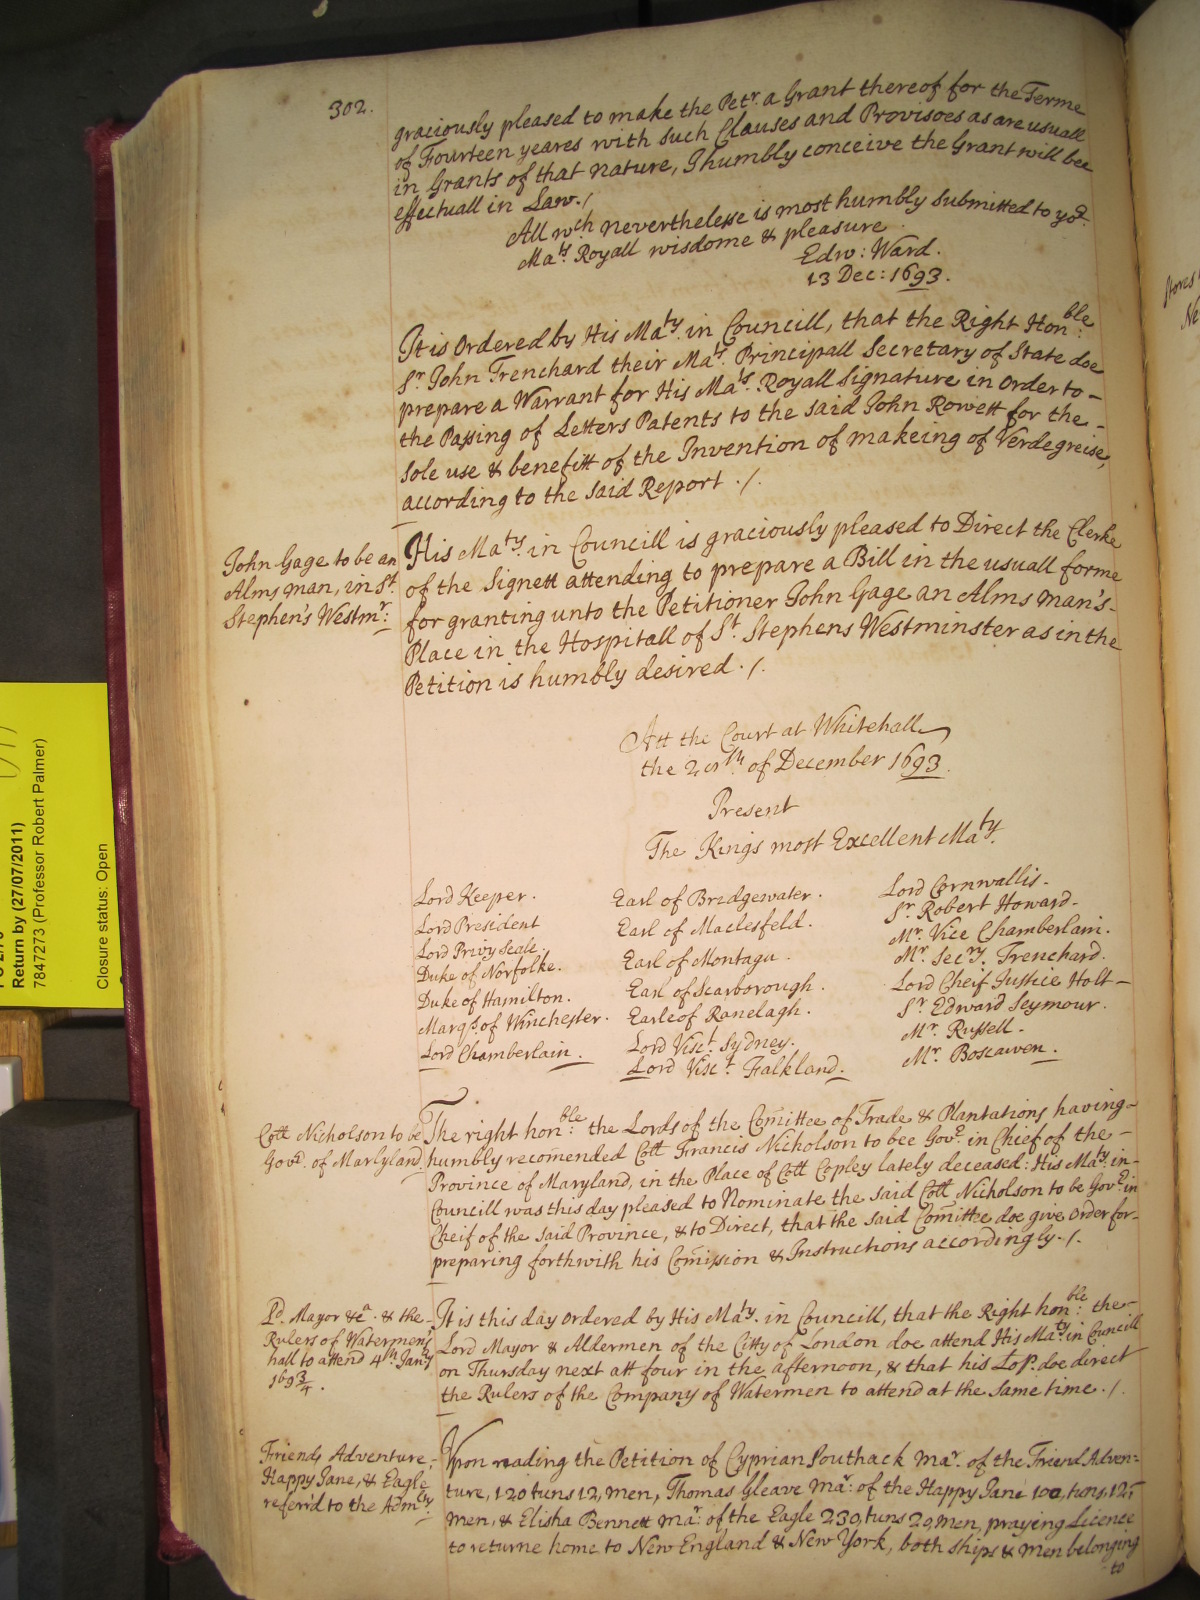 302.
graciously pleased to make the Petr. a Grant thereof for the Terme
of Fourteen yeares with such Clauses and Provisoes as are usuall
in Grants of that nature, I humbly conceive the Grant will bee
effectuall in Law./
All wch nevertheless is most humbly submitted to yor.
Mats. Royall wisdome & pleasure
Edw: Ward.
13 Dec: 1693.
It is Ordered by His Maty. in Councill, that the Right Honble:
Sr. John Trenchard their Mats. Principall Secretary of State doe
prepare a Warrant for His Mats. Royall Signature in order to -
the Passing of Letters Patents to the said John Rowett for the -
Sole use & benefitt of the Invention of makeing of Verdegreise,
according to the said Report ./.
John Gage to be an
Alms man, in St.
Stephen's Westmr:
His Maty. in Councill is graciously pleased to Direct the Clerke
of the Signett attending to prepare a Bill in the usuall forme
for granting unto the Petitioner John Gage an Alms man's-
Place in the Hospitall of St. Stephens Westminster as in the
Petition is humbly desired ./.
Att the Court at Whitehall
the of December 1693.
Present
The Kings most Excellent Maty.
Lord Keeper.
Lord President
Lord Privy Seale.
Duke of Norfolke.
Duke of Hamilton.
Marqs. of Winchester.
Lord Chamberlain.
Earl of Bridgewater.
Earl of Maclesfeld.
Earl of Montagu.
Earl of Scarborough.
Earle of Ranelagh.
Lord Visct. Sydney.
Lord Visct. Falkland.
Lord Cornwallis.
Sr. Robert Howard.
Mr. Vice Chamberlain.
Mr. Secry. Trenchard.
Lord Cheif Justice Holt -
Sr. Edward Seymour.
Mr. Russell.
Mr. Boscawen.
Coll Nicholson to be
Govr. of Marlyland
The right honble: the Lords of the Comittee of Trade & Plantations having-
humbly recomended Coll Francis Nicholson to bee Govr. in Chief of the -
Province of Maryland, in the Place of Coll Copley lately deceased: His Maty. in-
Councill was this day pleased to Nominate the said Coll Nicholson to be Govr. in
Cheif of the said Province, & to Direct, that the said Comittee doe give Order for-
preparing forthwith his Comission & Instructions accordingly ./.
Ld. Mayor &ca. & the
Rulers of Watermens
hall to attend 4th Jany
1693/4.
It is this day Ordered by His Maty. in Councill, that the Right honble: the-
Lord Mayor & Aldermen of the Citty of London doe attend His Maty. in Councill
on Thursday next att four in the afternoon, & that his Lop. doe direct
the Rulers of the Company of Watermen to attend at the same time ./.
Friends Adventure,
Happy Jane, & Eagle
referr'd to the Admty.
Upon reading the Petition of Cyprian Southack Mar. of the Friend Adven=
ture, 120 tuns 12, men, Thomas Gleave Mar: of the Happy Jane 100, tuns, 12,
Men, & Elisha Bennett Mar: of the Eagle 230, tuns 20, men, praying Licence
to returne home to New England & New York, both ships & men belonging
to
Stores
Ne
Return by (27/07/2011)
7847273 (Professor Robert Palmer)
Closure status: Open